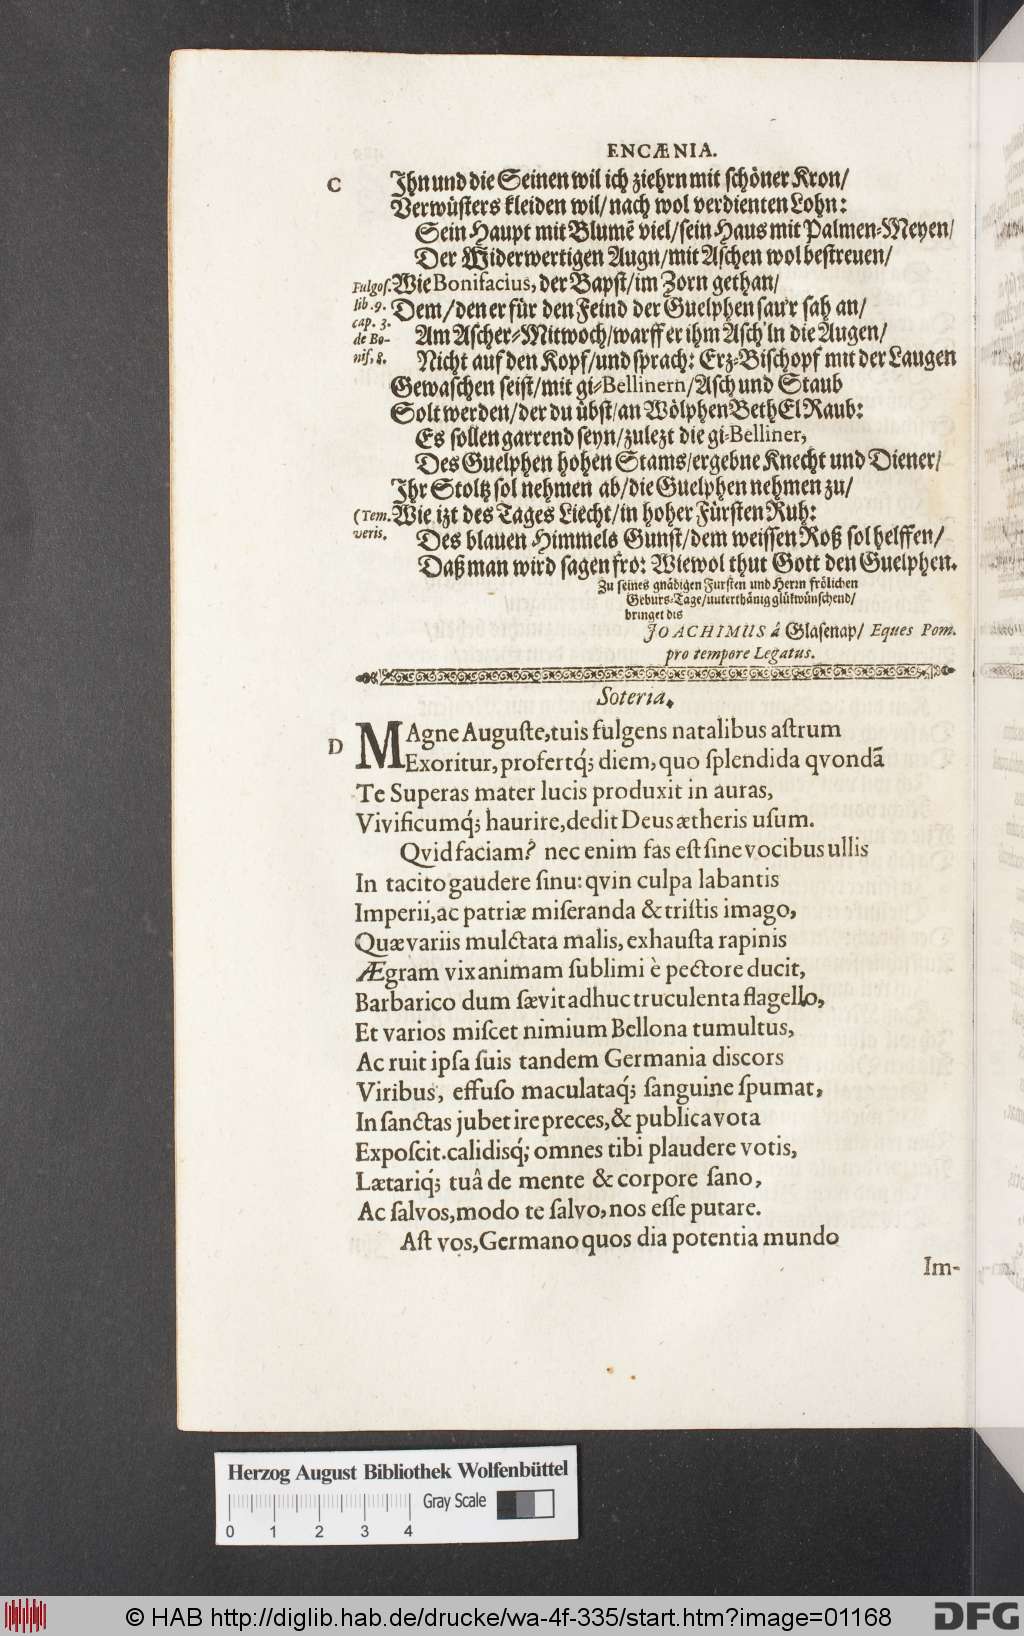 ENCÆNIA.
C
Ihn und die Seinen wil ich ziehrn mit schöner Kron/
Verwüsters kleiden wil/ nach wol verdienten Lohn:
Sein Haupt mit Blumē viel/ sein Haus mit Palmen-Meyen/
Der Widerwertigen Augn/ mit Aschen wol bestreuen/
Fulgos.
lib. 9.
cap. 3.
de Bo-
nif. 8.
Wie Bonifacius, der Bapst/ im Zorn gethan/
Dem/ den er für den Feind der Guelphen sau'r sah an/
Am Ascher-Mittwoch/ warff er ihm Asch' in die Augen/
Nicht auf den Kopf/ und sprach: Erz-Bischopf mit der Laugen
Gewaschen seist/ mit gi-Bellinern/ Asch und Staub
Solt werden/ der du übst/ an Wölphen BethEl Raub:
Es sollen garrend seyn/ zulezt die gi-Belliner,
Des Guelphen hohen Stams/ ergebne Knecht und Diener/
Ihr Stoltz sol nehmen ab/ die Guelphen nehmen zu/
(Tem.
veris.
Wie izt des Tages Liecht/ in hoher Fürsten Ruh:
Des blauen Himmels Gunst/ dem weissen Roß sol helffen/
Daß man wird sagen fro: Wiewol thut Gott den Guelphen.
Zu seines gnädigen Fursten und Herrn frölichen
Geburs-Tage/ unterthänig glükwünschend/
bringet dis
JOACHIMUS â Glasenap/ Eques Pom.
pro tempore Legatus.
Soteria.
D
MAgne Auguste, tuis fulgens natalibus astrum
Exoritur, profertq́; diem, quo splendida qvondã
Te Superas mater lucis produxit in auras,
Vivificumq́; haurire, dedit Deus ætheris usum.
Qvid faciam? nec enim fas est sine vocibus ullis
In tacito gaudere sinu: qvin culpa labantis
Imperii, ac patriæ miseranda & tristis imago,
Quæ variis mulctata malis, exhausta rapinis
Ægram vix animam sublimi è pectore ducit,
Barbarico dum sævit adhuc truculenta flagello,
Et varios miscet nimium Bellona tumultus,
Ac ruit ipsa suis tandem Germania discors
Viribus, effuso maculataq́; sanguine spumat,
In sanctas jubet ire preces, & publica vota
Exposcit. calidisq́; omnes tibi plaudere votis,
Lætariq́; tuâ de mente & corpore sano,
Ac salvos, modo te salvo, nos esse putare.
Ast vos, Germano quos dia potentia mundo
Im-
Herzog August Bibliothek Wolfenbüttel
Gray Scale
0 1 2 3 4
© HAB http://diglib.hab.de/drucke/wa-4f-335/start.htm?image=01168
DFG